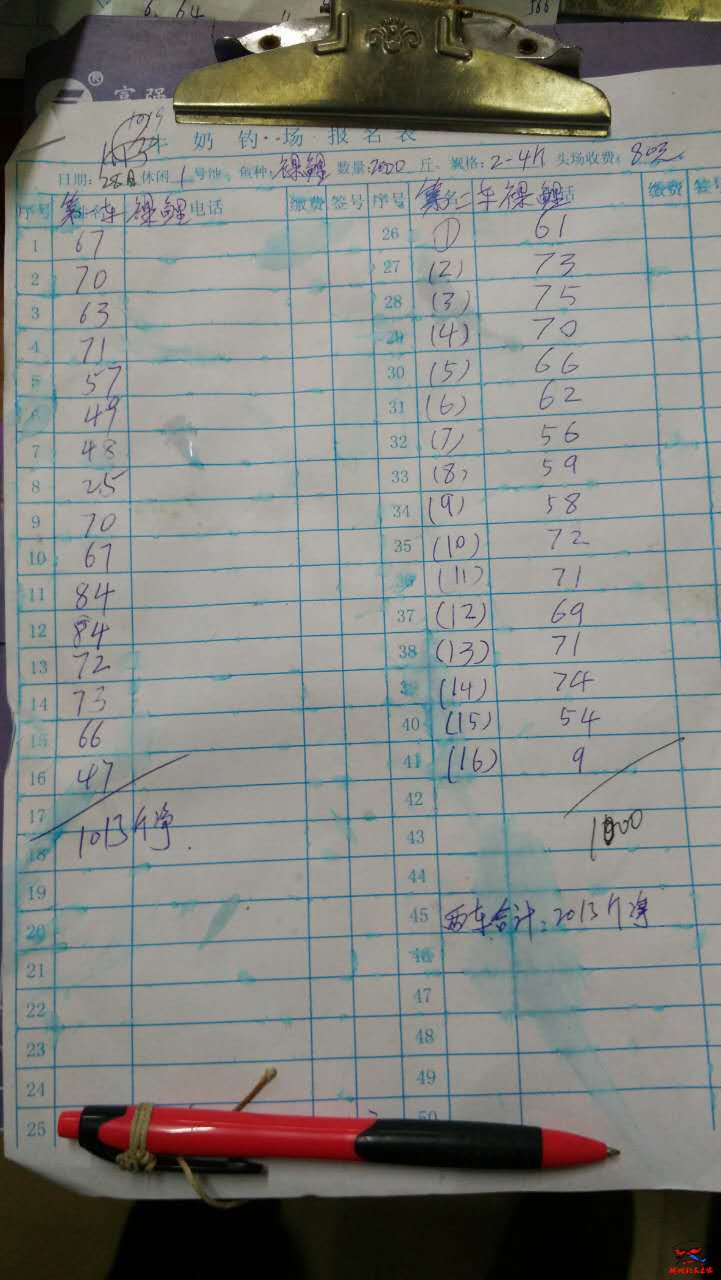 6. 64
166
® 富强
牛 奶 钓 场 报 名 表
日期: 28日 休闲 1 号池 鱼种: 裸鲤 数量: 2000 斤 规格: 2-4斤 头场收费: 80元
序号 第一车 裸鲤 电话 缴费 签号 序号 第二车 裸鲤 话 缴费 签号
1 67 26 (1) 61
2 70 27 (2) 73
3 63 28 (3) 75
4 71 29 (4) 70
5 57 30 (5) 66
6 49 31 (6) 62
7 48 32 (7) 56
8 25 33 (8) 59
9 70 34 (9) 58
10 67 35 (10) 72
11 84 36 (11) 71
12 84 37 (12) 69
13 72 38 (13) 71
14 73 3 (14) 74
15 66 40 (15) 54
16 47 41 (16) 9
17 42
18 1013斤净. 43 1000
19 44
20 45 两车合计: 2013斤净
21 46
22 47
23 48
24 49
25 50